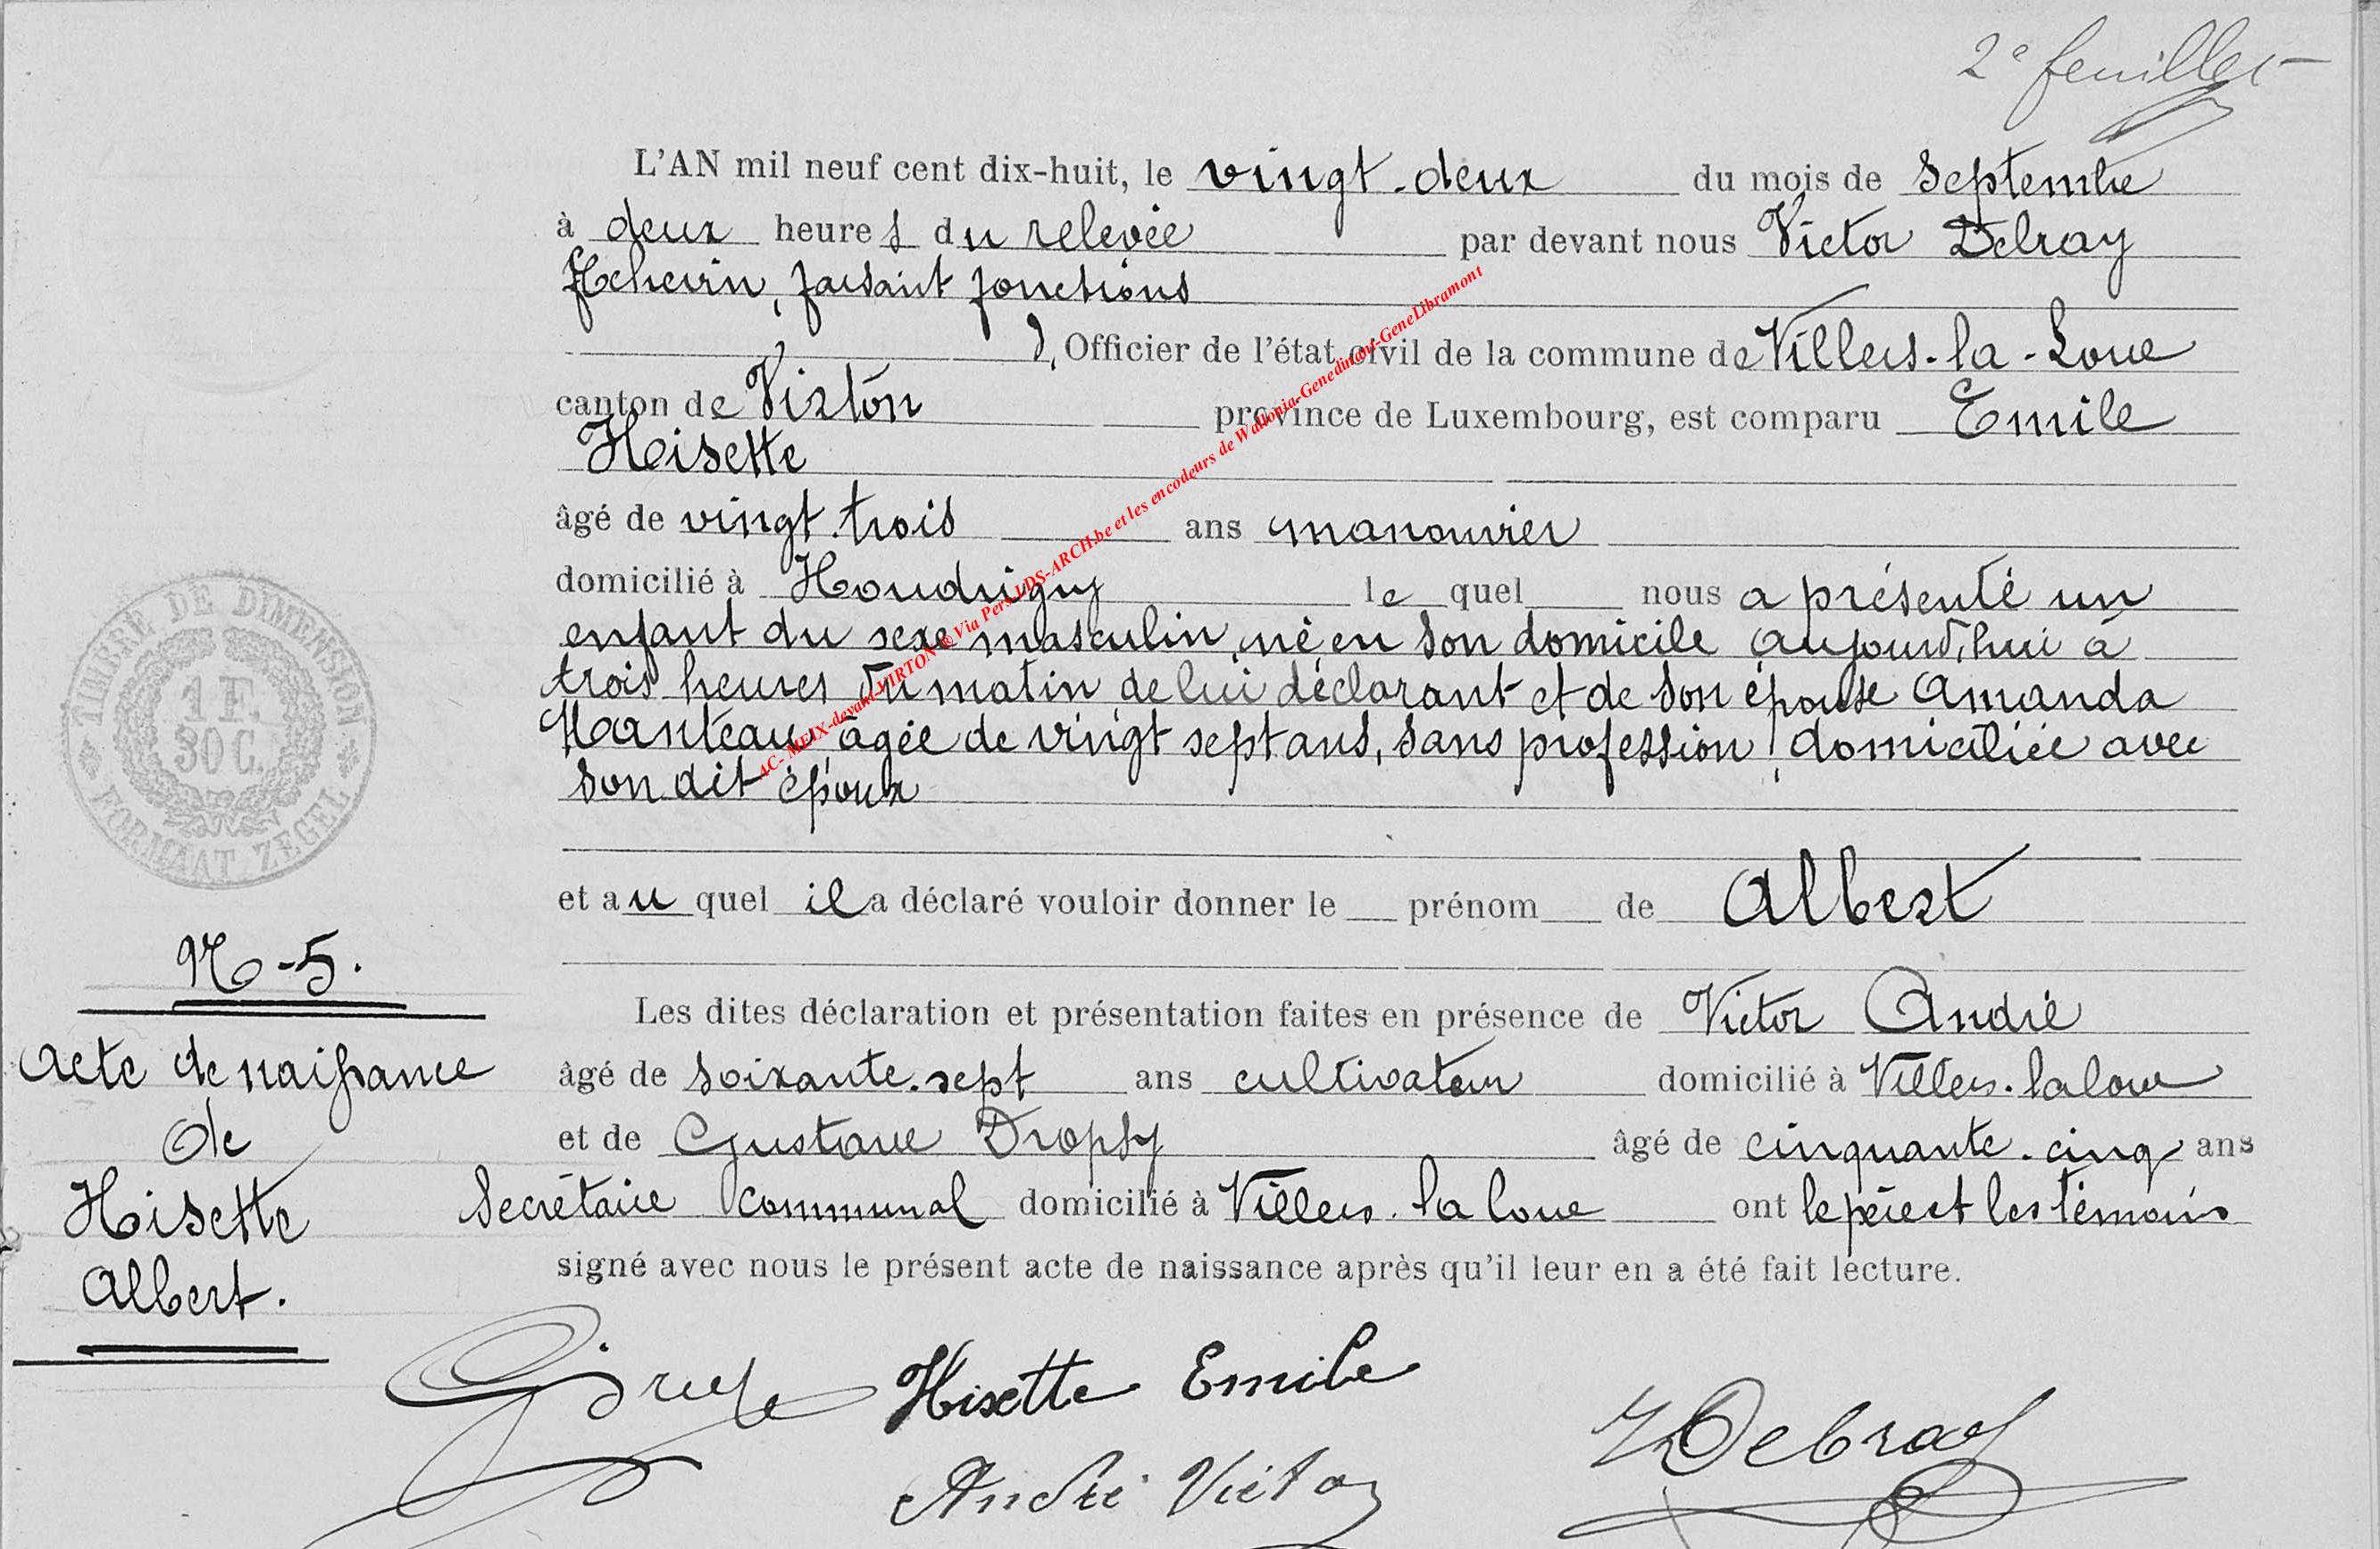 2e feuillet
L'AN mil neuf cent dix-huit, le vingt-deux du mois de Septembre
à deux heures du relevée par devant nous Victor Delray
Echevin, faisant fonctions
d, Officier de l'état civil de la commune de Villers-la-Loue
canton de Virton province de Luxembourg, est comparu Emile
Hisette
âgé de vingt-trois ans manouvrier
domicilié à Houdrigny lequel nous a présenté un
enfant du sexe masculin, né en son domicile aujourd'hui à
trois heures du matin de lui déclarant et de son épouse Amanda
Manteau âgée de vingt sept ans, sans profession, domiciliée avec
son dit époux
et auquel il a déclaré vouloir donner le prénom de Albert
Les dites déclaration et présentation faites en présence de Victor André
âgé de soixante-sept ans cultivateur domicilié à Villers-la loue
et de Gustave Dropsy âgé de cinquante-cinq ans
Secrétaire communal domicilié à Villers-la loue ont le père et les témoins
signé avec nous le présent acte de naissance après qu'il leur en a été fait lecture.
TIMBRE DE DIMENSION
1 F.
30 C.
FORMAAT ZEGEL
No-5.
Acte de naissance
de
Hisette
Albert.
Hisette Emile
André Victor
AC- MEIX-devant-VIRTON ® Via Pers. LDS-ARCH.be et les encodeurs de Wallonia-Genedinant-GeneLibramont